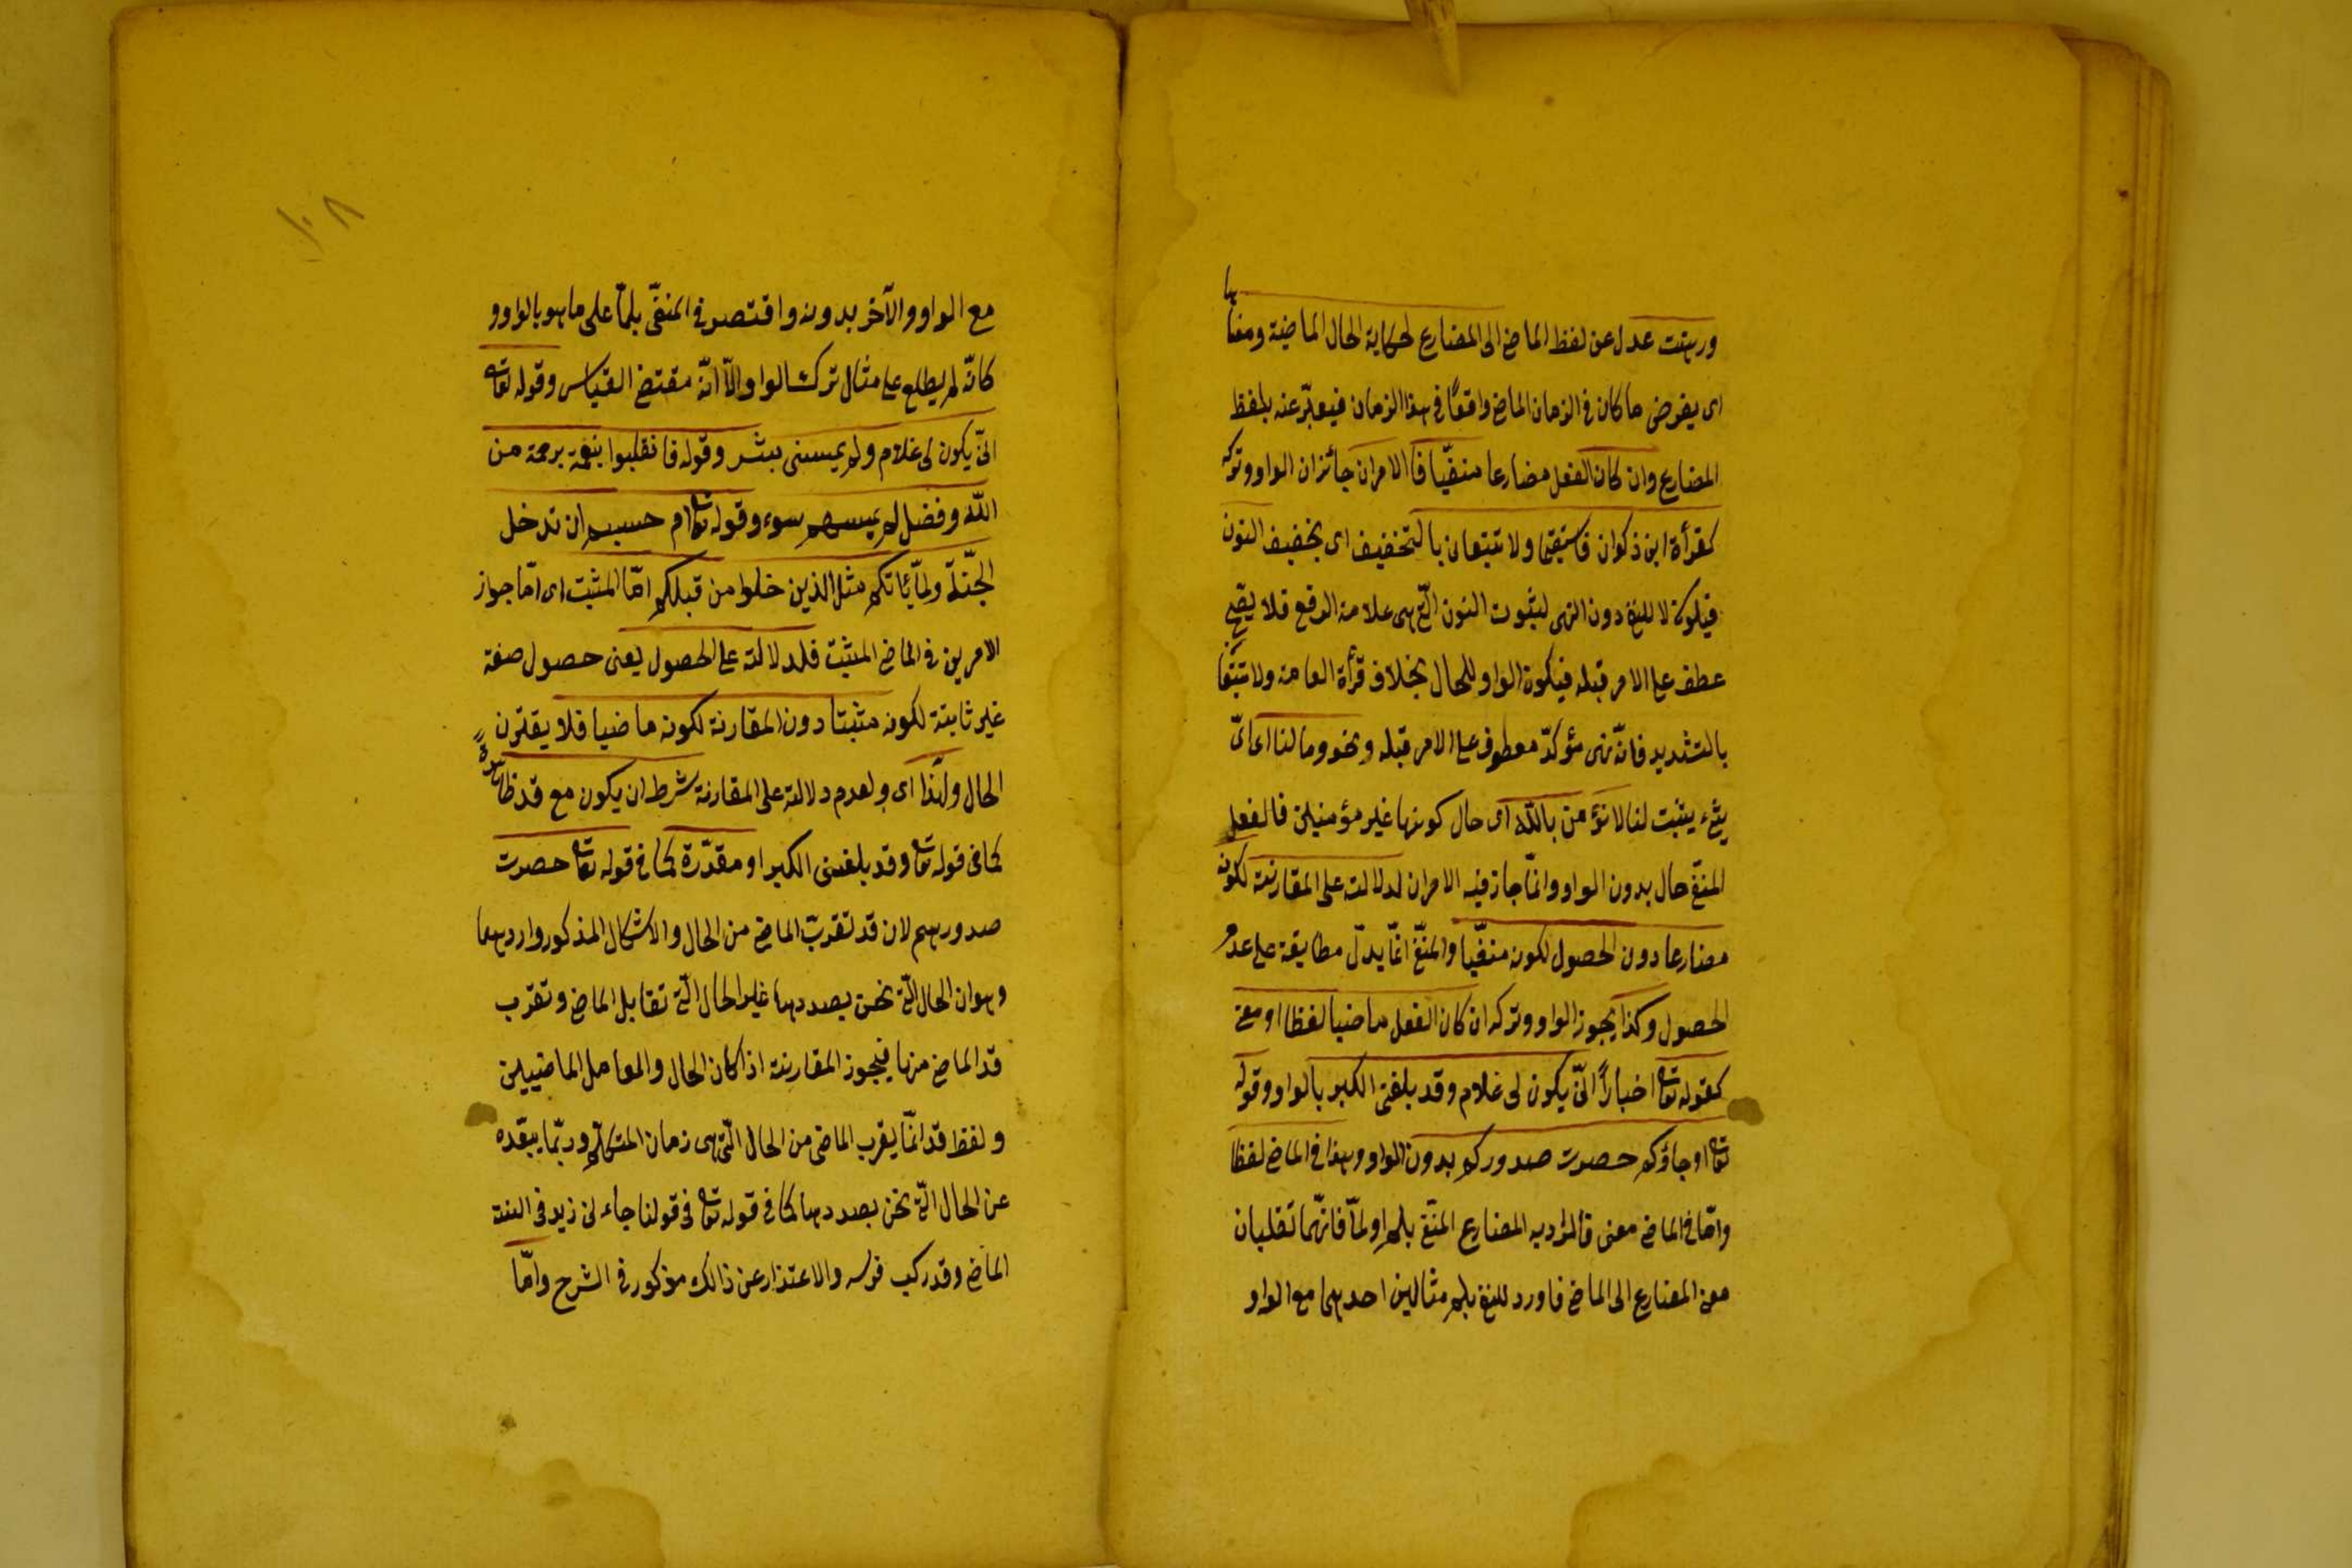 ورهنت عدل عن لفظ الماضى الى المضارع لحكاية الحال الماضية ومعناها
اى يفرض ما كان فى الزمان الماضى واقعًا فى هذا الزمان فيعبّر عنه بلفظ
المضارع وان كان الفعل مضارعا منفيّا فالامران جائزان الواو وتركه
كقرأة ابن ذكوان فاستقيما ولا تتبعان بالتخفيف اى بتخفيف النون
فيكون لا للنفى دون النهى لثبوت النون الّتى هى علامة الرفع فلا يصّح
عطفه على الامر قبله فيكون الواو للحال بخلاف قرأة العامة ولا تتّبعا
بالتشديد فانّه نهى مؤكدّ معطوف على الامر قبله ونحو وما لنا اى اىّ
شئ يثبت لنا لا نؤمن باللّه اى حال كوننا غير مؤمنين فالفعل
المنفى حال بدون الواو وانمّا جاز فيه الامران لدلالته على المقارنة لكونه
مضارعا دون الحصول لكونه منفيّا والمنفّى انمّا يدلّ مطابقة على عدم
الحصول وكذا يجوز الواو وتركه ان كان الفعل ماضيا لفظا او معنى
كقوله تعا اخبارًا انّى يكون لى غلام وقد بلغنى الكبر بالواو وقوله
تعا او جاؤكم حصرت صدوركم بدون الواو وهذا فى الماضى لفظا
وامّا فى الماضى معنى فالمراد به المضارع المنفّى بلم او لمّا فانّهما تقلبان
معنى المضارع الى الماضى فاورد للنفى بلم مثالين احدهما مع الواو
١٠٨
مع الواو والآخر بدونه واقتصر فى المنفىّ بلمّا على ما هو بالواو و
كانّه لم يطلع على مثال ترك الواو الاّ انّه مقتضى القياس وقوله تعا
انّى يكون لى غلام ولم يمسسنى بشر وقوله فانقلبوا بنعمة برحمة من
اللّه وفضل لم يمسسهم سوء وقوله تعا ام حسبتم ان تدخل
الجنّة ولمّا يأتكم مثل الذين خلوا من قبلكم امّا المثبت اى امّا جواز
الامرين فى الماضى المثبت فلدلالته على الحصول يعنى حصول صفة
غير ثابتة لكونه مثبتا دون المقارنة لكونه ماضيا فلا يقترن
الحال ولهذا اى ولعدم دلالته على المقارنة شرط ان يكون مع قد ظاهرة
كما فى قوله تعا وقد بلغنى الكبر او مقدّرة كما فى قوله تعا حصرت
صدورهم لان قد تقرّب الماضى من الحال والاشكال المذكور وارد ههنا
وهو ان الحال الّتى نحن بصددها غير الحال الّتى تقابل الماضى وتقرب
قد الماضى منها فيجوز المقارنة اذا كان الحال والعامل الماضيين
ولفظ قد انمّا يقرب الماضى من الحال الّتى هى زمان المتكلّم وربّما يبعّده
عن الحال الّتى نحن بصددها كما فى قوله تعا فى قولنا جاءنى زيد فى السنة
الماضى وقد ركب فرسه والاعتذار عن ذالك مذكور فى الشرح وامّا